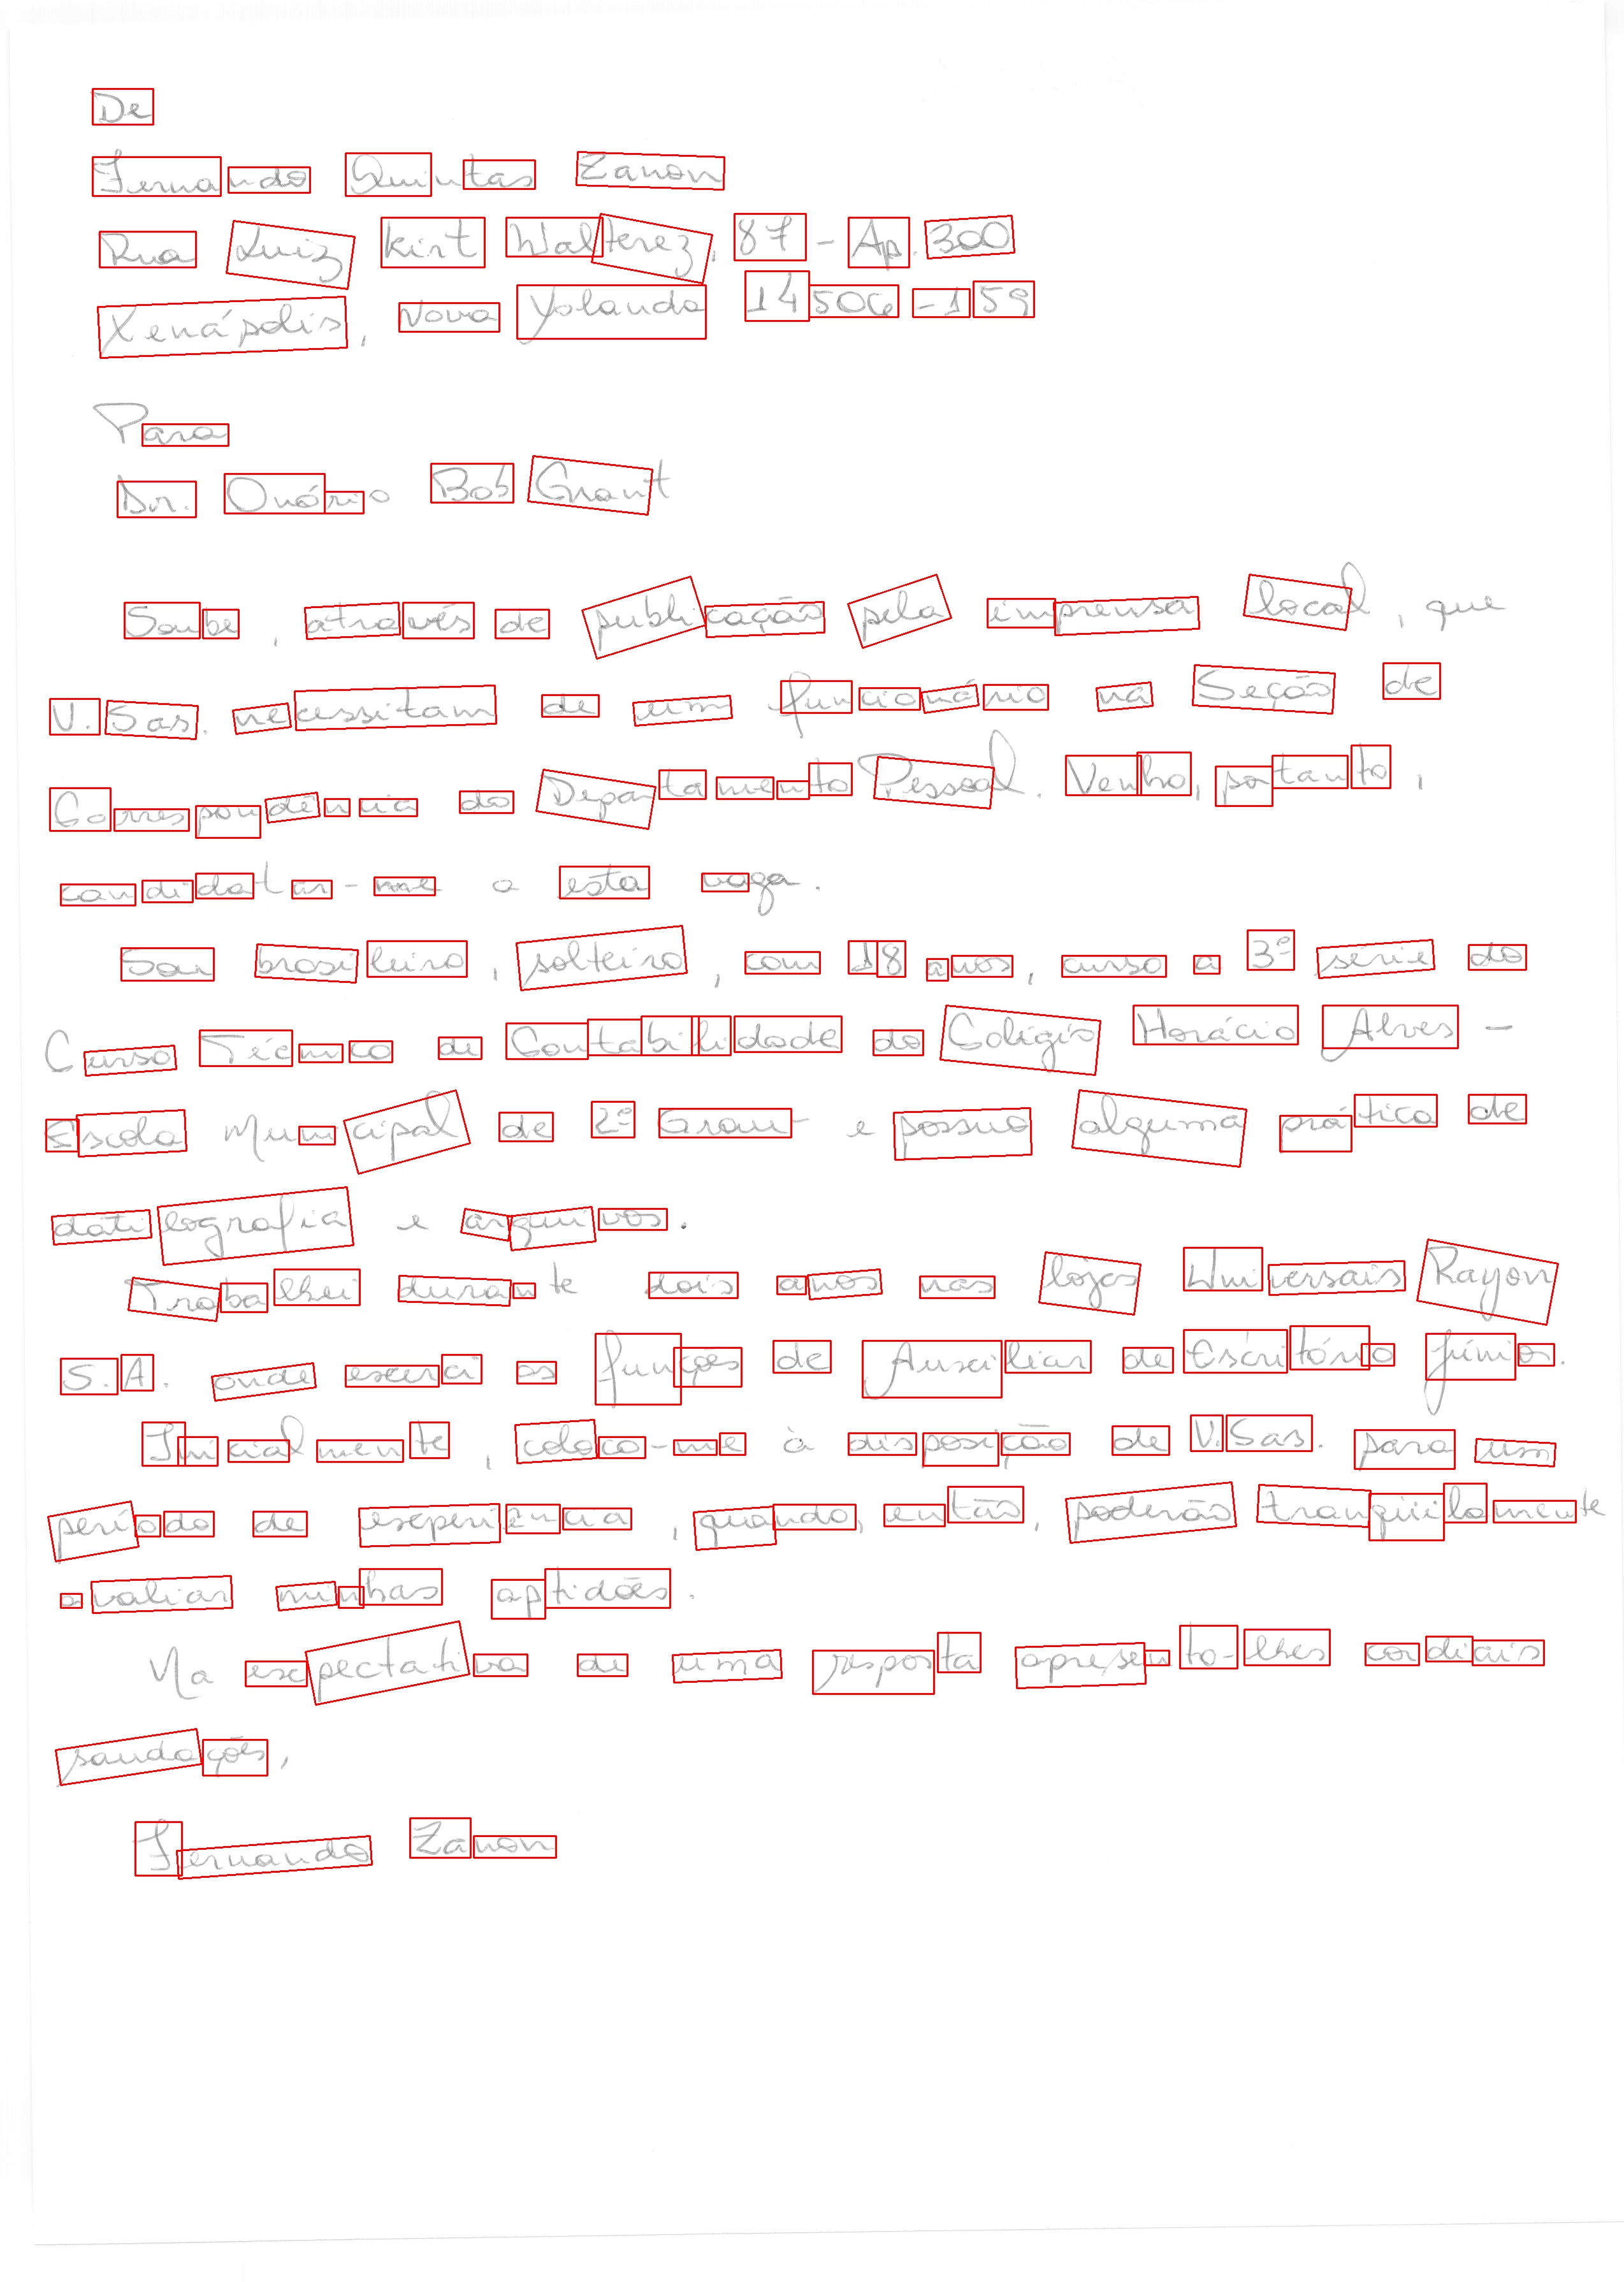 De
Fernando Quintas Zanon
Rua Luiz Kirt Walterez, 87 - Ap. 300
Xenápolis, Nova Yolanda 14506-159
Para
Dr. Onório Bob Grant
Soube, através de publicação pela imprensa local, que
V. Sas. necessitam de um funcionário na Seção de
Correspondência do Departamento Pessoal. Venho, portanto,
candidatar-me a esta vaga.
Sou brasileiro, solteiro, com 18 anos, curso a 3ª série do
Curso Técnico de Contabilidade do Colégio Horácio Alves -
Escola Municipal de 2º Grau - e possuo alguma prática de
datilografia e arquivos.
Trabalhei durante dois anos nas lojas Universais Rayon
S.A. onde exerci as funções de Auxiliar de Escritório júnior.
Inicialmente, coloco-me à disposição de V.Sas. para um
período de experiência, quando, então, poderão tranqüilamente
avaliar minhas aptidões.
Na expectativa de uma resposta apresento-lhes cordiais
saudações,
Fernando Zanon